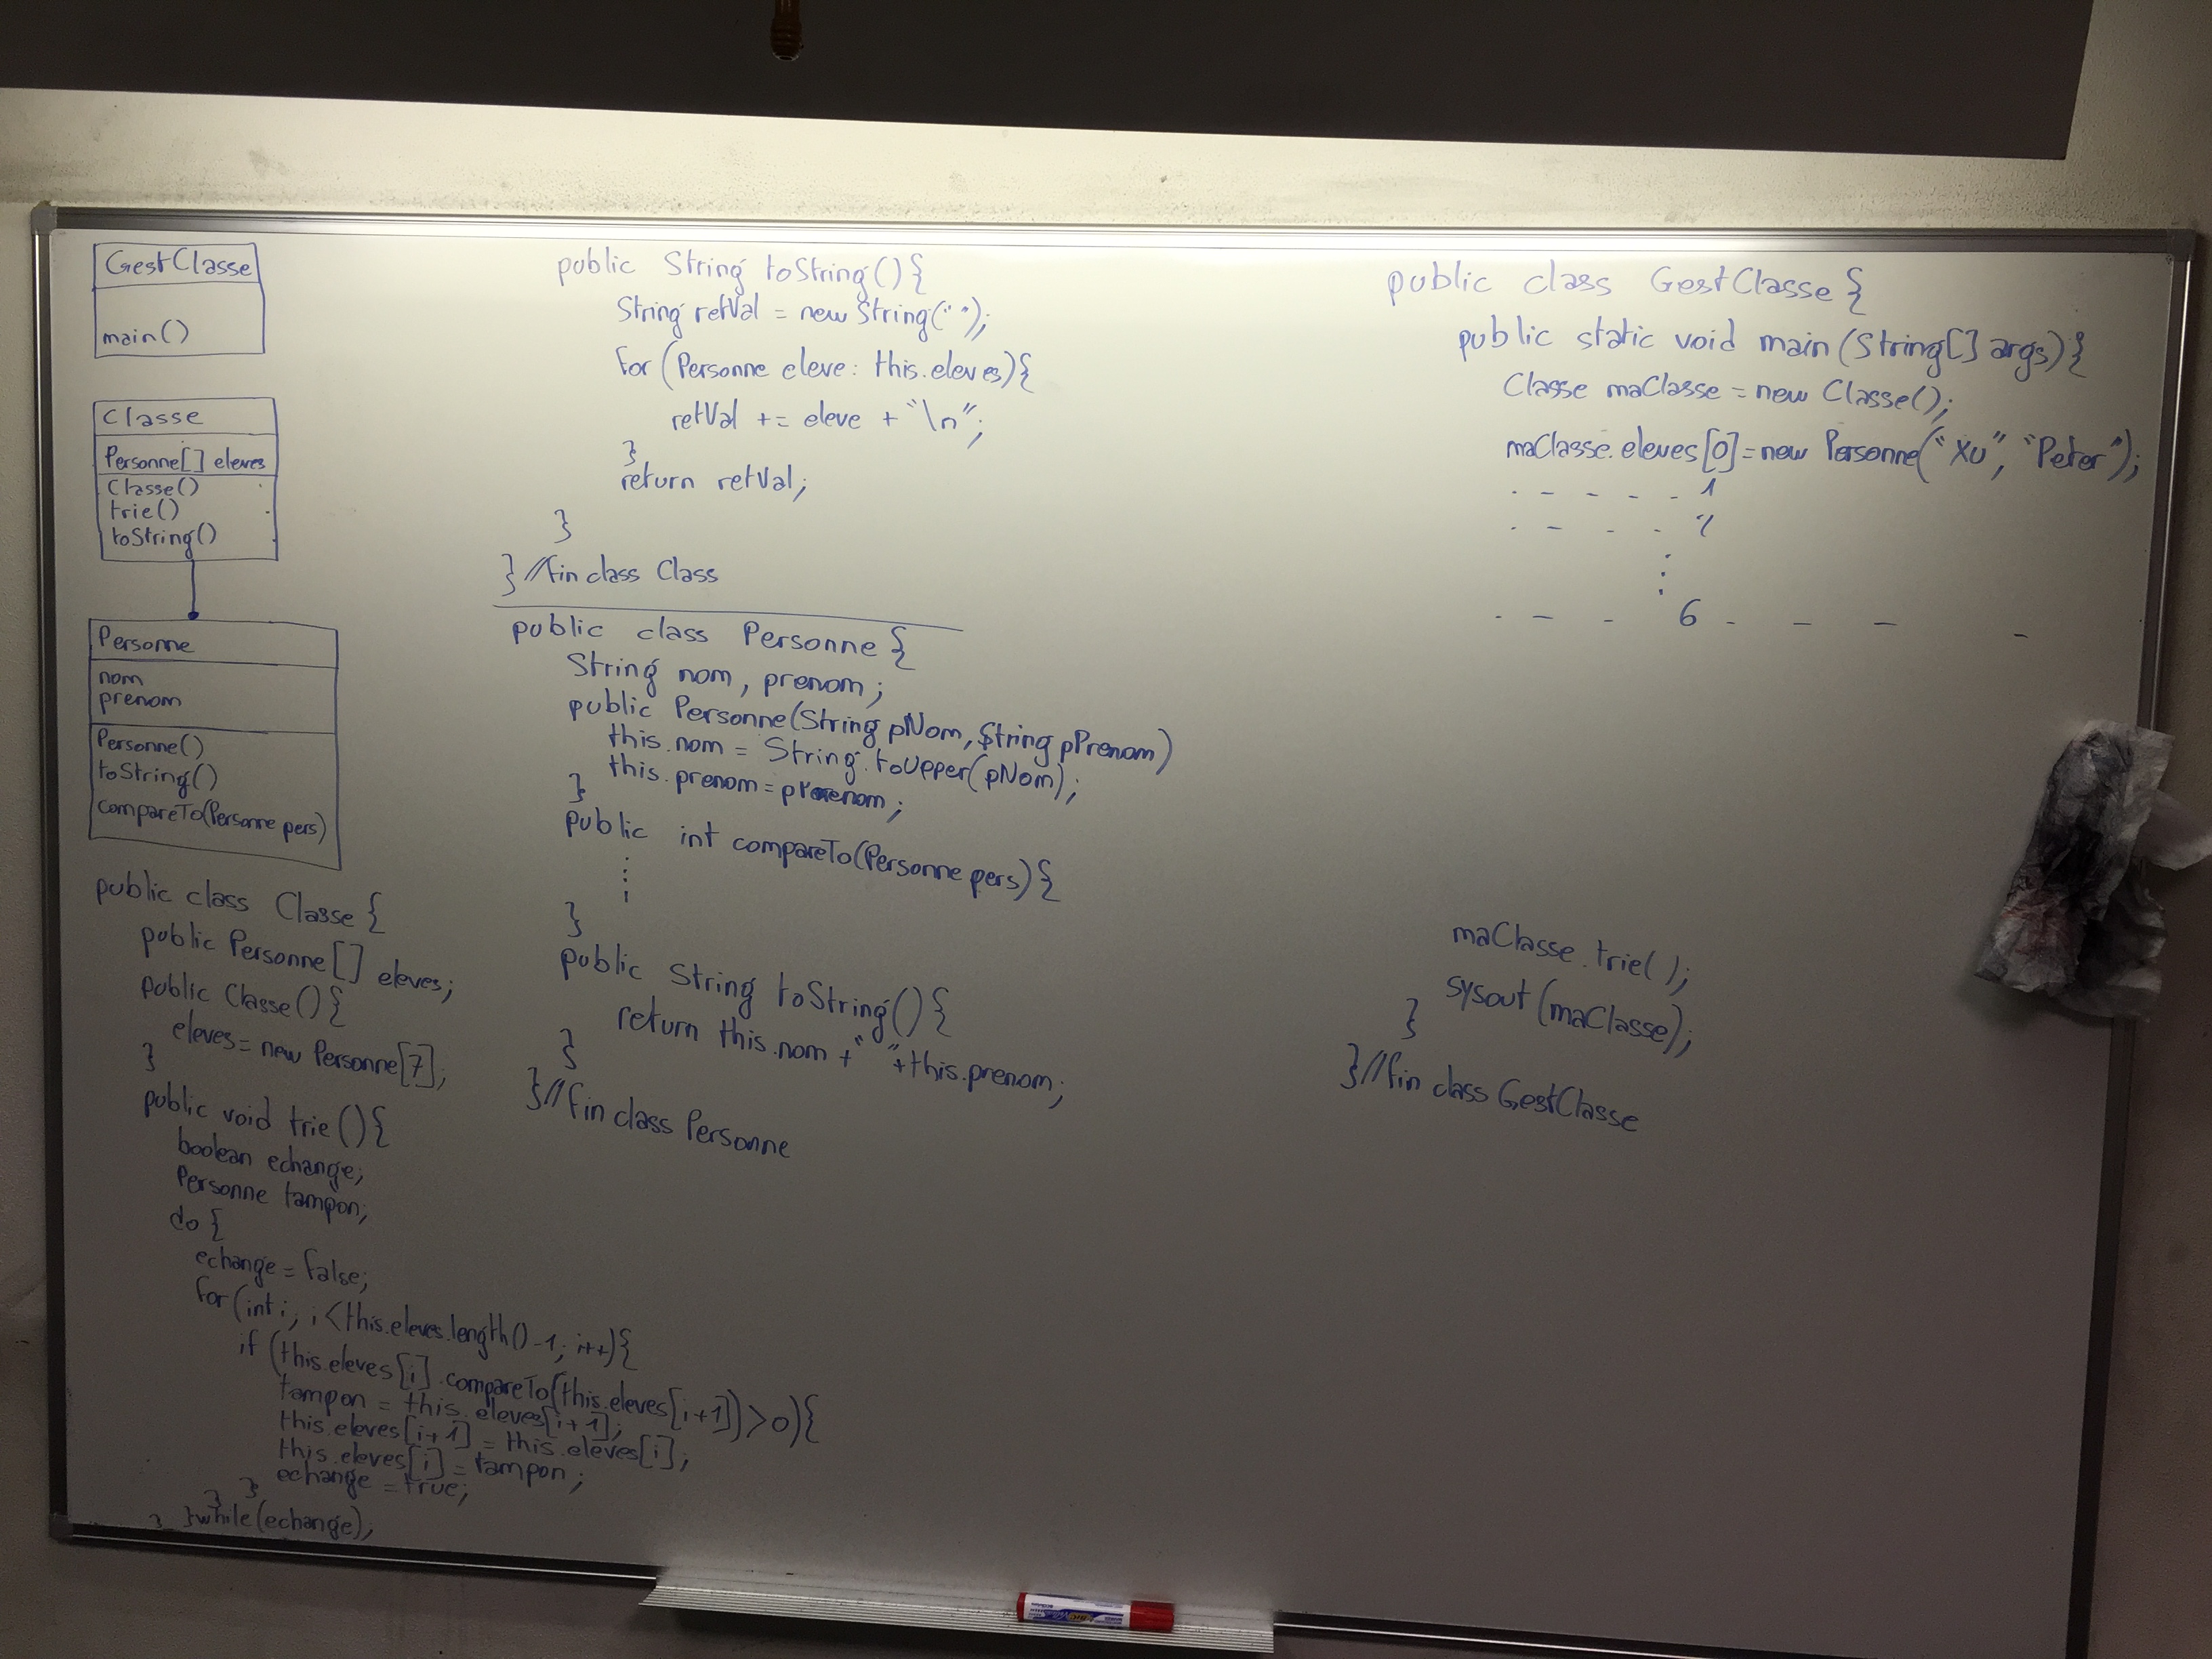 GestClasse
main()
Classe
Personne[] eleves
Classe()
trie()
toString()
Personne
nom
prenom
Personne()
toString()
compareTo(Personne pers)
public class Classe {
public Personne[] eleves;
public Classe(){
eleves = new Personne[7];
}
public void trie(){
boolean echange;
Personne tampon;
do {
echange = false;
for(int i, i<this.eleves.length()-1; i++){
if (this.eleves[i].compareTo(this.eleves[i+1])>0){
tampon = this.eleves[i+1];
this.eleves[i+1] = this.eleves[i];
this.eleves[i] = tampon;
echange = true;
} }
} }while(echange);
public String toString(){
String retVal = new String("");
for (Personne eleve: this.eleves){
retVal += eleve + "\n";
}
return retVal;
}
} //fin class Class
public class Personne {
String nom, prenom;
public Personne(String pNom, String pPrenom)
this.nom = String.toUpper(pNom);
this.prenom = pPrenom;
}
public int compareTo(Personne pers){
}
public String toString(){
return this.nom + " "+this.prenom;
}
}//fin class Personne
public class GestClasse {
public static void main(String[] args){
Classe maClasse = new Classe();
maClasse.eleves[0] = new Personne("Xu", "Peter");
. - - - - 1
. - - - 2
:
. - - 6 - - - -
maClasse.trie();
sysout(maClasse);
}
}//fin class GestClasse